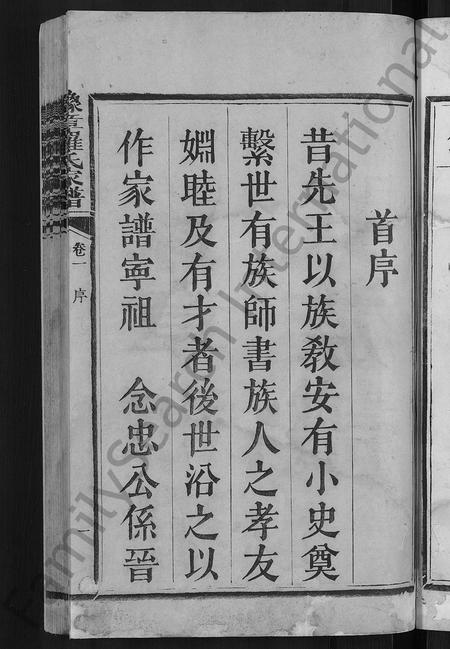 首序
昔先王以族敎安有小史奠
繫世有族師書族人之孝友
婣睦及有才者後世沿之以
作家譜寧祖 念忠公係晉
豫章羅氏家譜
卷一 序
一
FamilySearch International